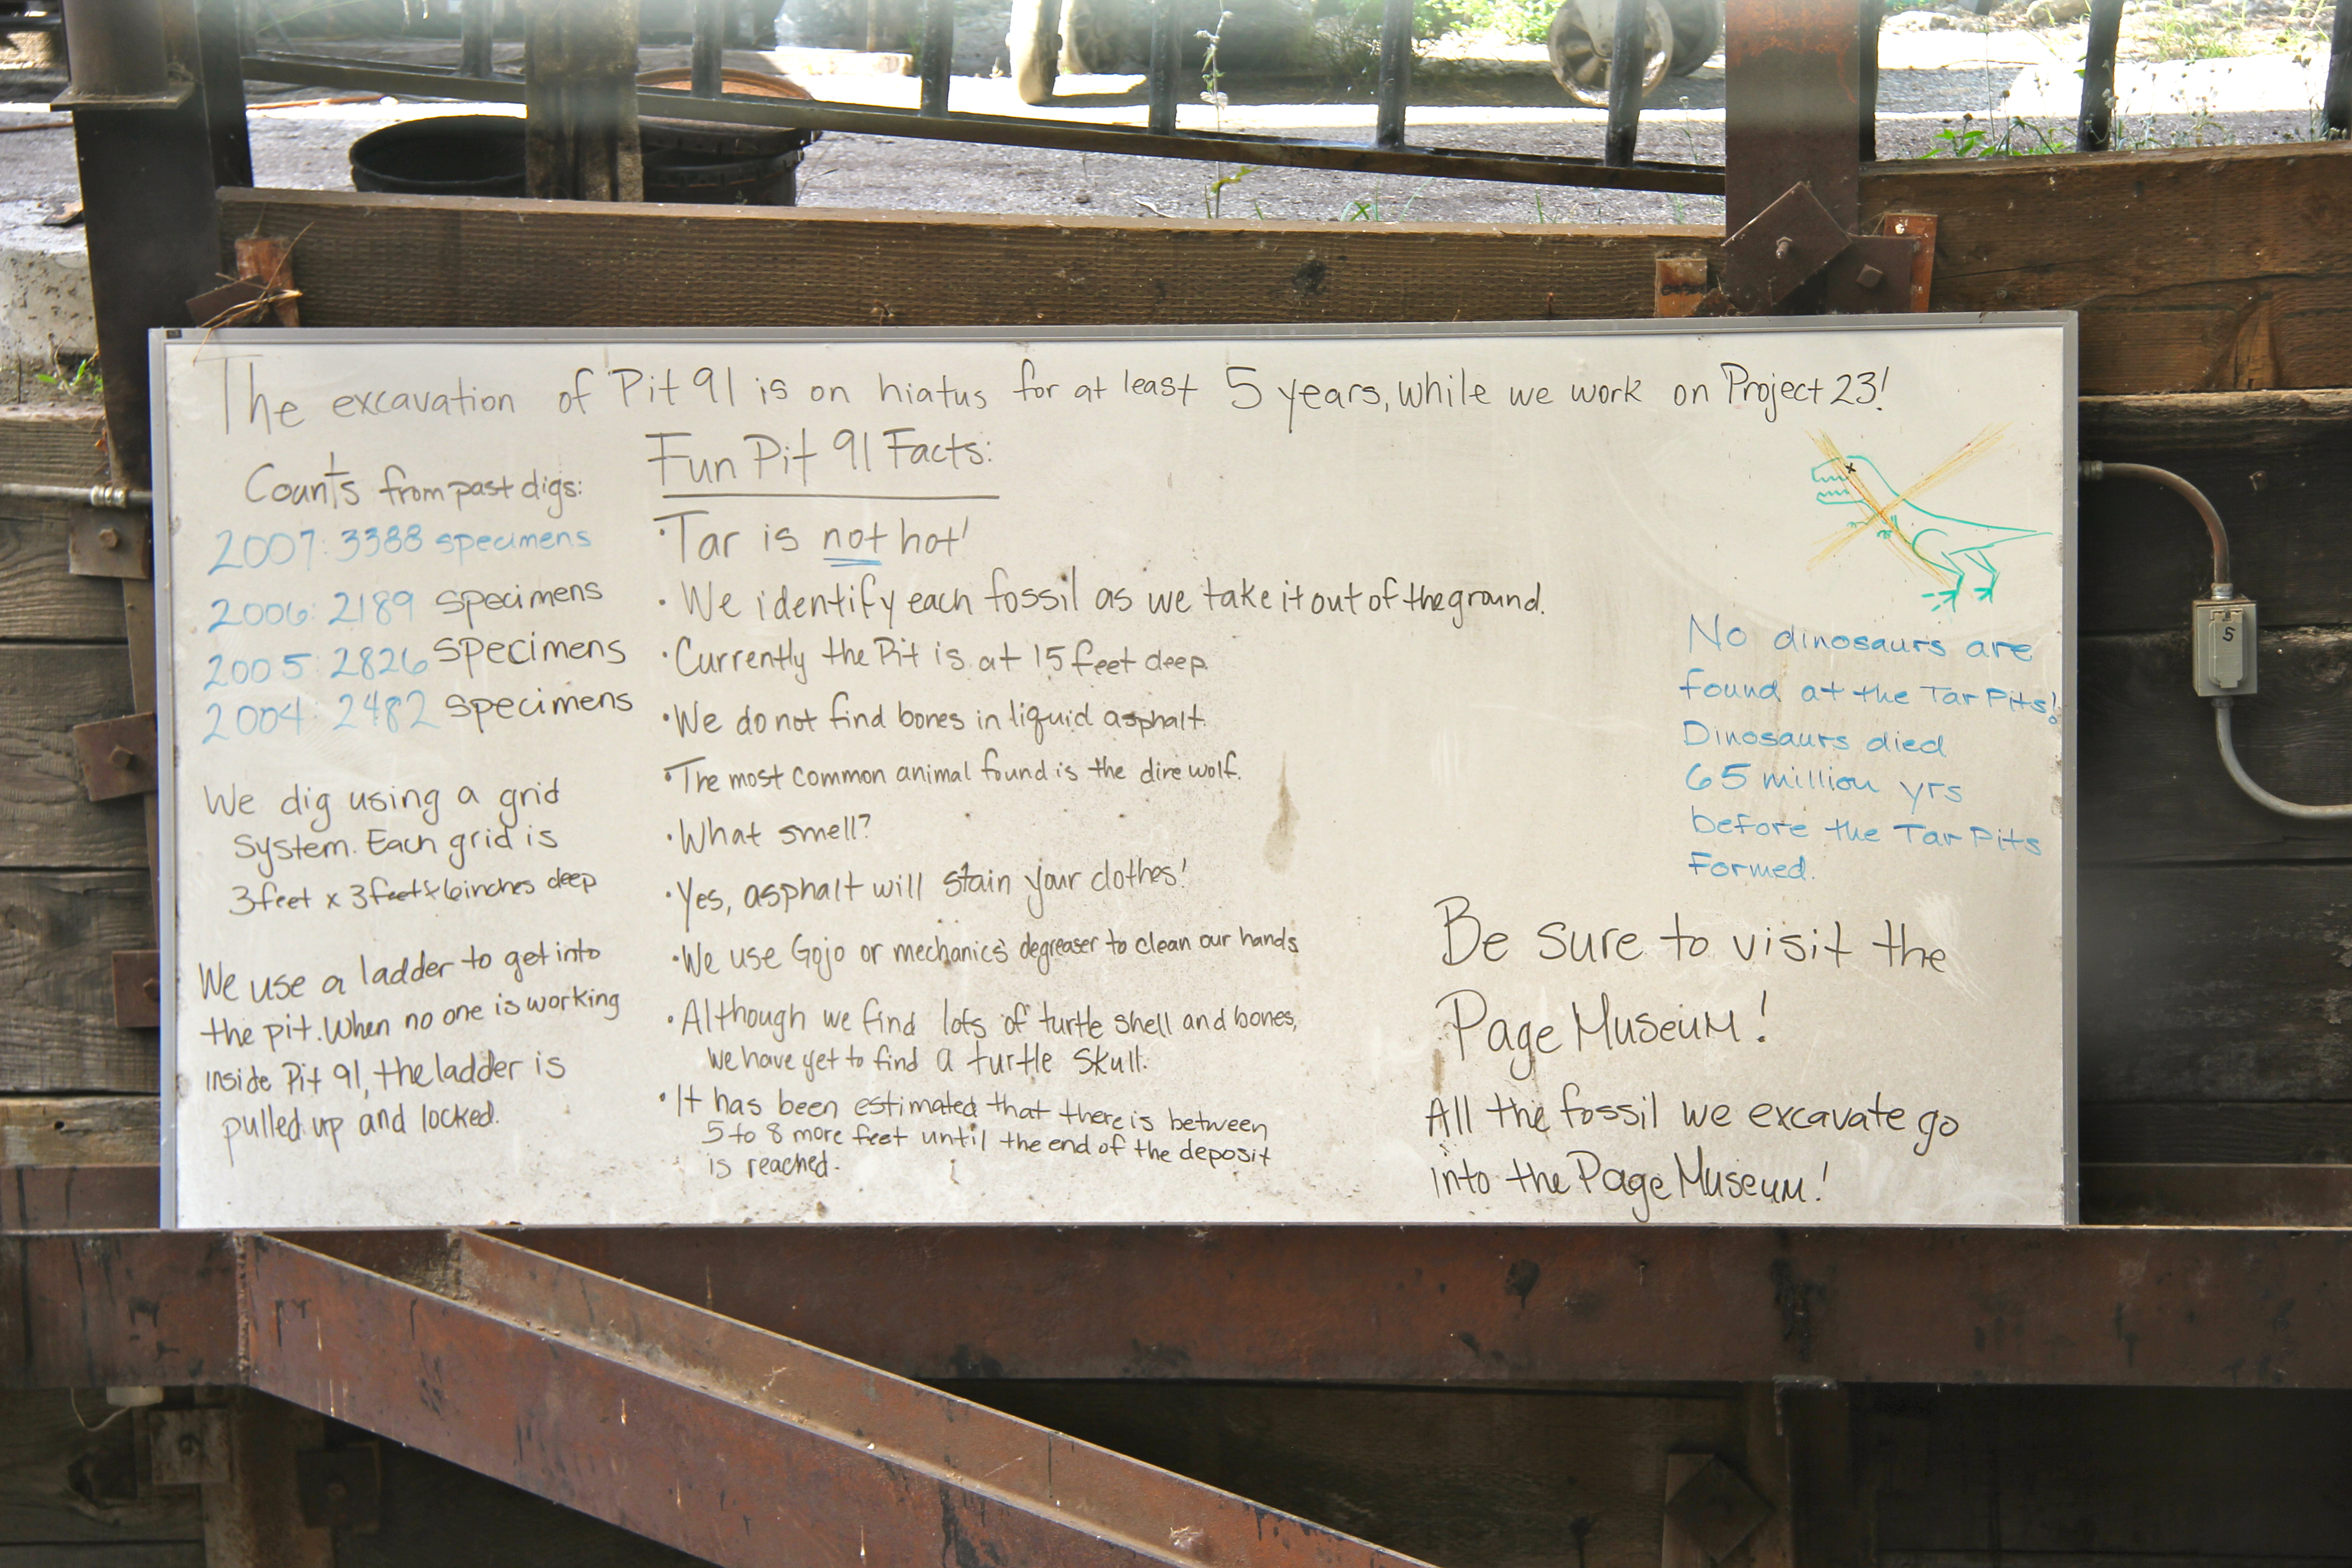 The excavation of Pit 91 is on hiatus for at least 5 years, while we work on Project 23!
Counts from past digs:
2007: 3388 specimens
2006: 2189 specimens
2005: 2826 specimens
2004: 2482 specimens
We dig using a grid
system. Each grid is
3 feet x 3 feet x 6 inches deep
We use a ladder to get into
the pit. When no one is working
inside Pit 91, the ladder is
pulled up and locked.
Fun Pit 91 Facts:
·Tar is not hot!
·We identify each fossil as we take it out of the ground.
·Currently the Pit is at 15 feet deep.
·We do not find bones in liquid asphalt.
·The most common animal found is the dire wolf.
·What smell?
·Yes, asphalt will stain your clothes!
·We use Gojo or mechanic's degreaser to clean our hands
·Although we find lots of turtle shell and bones,
we have yet to find a turtle skull.
·It has been estimated that there is between
5 to 8 more feet until the end of the deposit
is reached.
No dinosaurs are
found at the Tar Pits!
Dinosaurs died
65 million yrs
before the Tar Pits
formed.
Be sure to visit the
Page Museum!
All the fossil we excavate go
into the Page Museum!
5